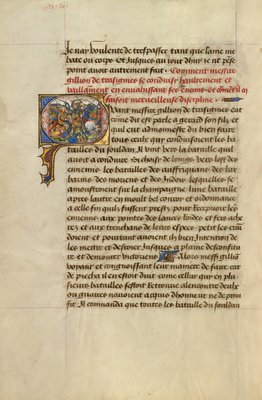 Je nay voulente de trespasser tant que lame me
bate ou corps et jusques au jour dhuy je nel pens
point avoir autrement fait Comment messire
gillion de trasignies se conduisi haultement et
vaillamment en envaissant ses ennemis et comment il en
faisoit merveilleuse discipline
Quant messire gillion de trasignies eut
comme dit est parle a gerard son filz et
quil eut admonneste du bien faire
tous ceulx que conduisoient les ba
tailles du souldan Il vint vers la bataille quil
avoit a conduire Il choisi de longs vers lost des
ennemis les batailles des auffriquans des bar
barins des moriens et des Indois lesquelles se
amonstrerent sur la champaigne lune bataille
apres lautre en moult bel convoy et ordonnance
a celle fin quilz fussent prestz pour recepvoir les
ennemis aux pointes des lances roides et fers ache
rez et aux trenchans de leurs espees petit les crai
doient et pourtant avoient ilz bien Intention de
les mettre et desivoir Jusques a plaine desconfitu
re et demourer victoriens Alors mess gillion
voyant et congnoissant leur maniere de faire car
de piecha il en estoit duit comme cellui quy en plu
sieurs batailles sestoit retrouve alencontre deulz
ou gaaires navoient acquis dhonneur ne de prou
fit Il commanda que toutes les batailles du souldan